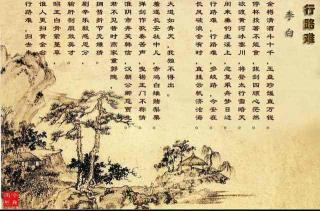 行路难
李白
金樽清酒斗十千。玉盘珍羞直万钱。
停杯投箸不能食。拔剑四顾心茫然。
欲渡黄河冰塞川。将登太行雪暗天。
闲来垂钓坐溪上。忽复乘舟梦日边。
行路难。行路难。多歧路。今安在。
长风破浪会有时。直挂云帆济沧海。
大道如青天。我独不得出。
羞逐长安社中儿。赤鸡白雉赌梨栗。
弹剑作歌奏苦声。曳裾王门不称情。
淮阴市井笑韩信。汉朝公卿忌贾生。
君不见昔时燕家重郭隗。
拥篲折节无嫌猜。
剧辛乐毅感恩分。
输肝剖胆效英才。
昭王白骨萦蔓草。
谁人更扫黄金台。
行路难。归去来。